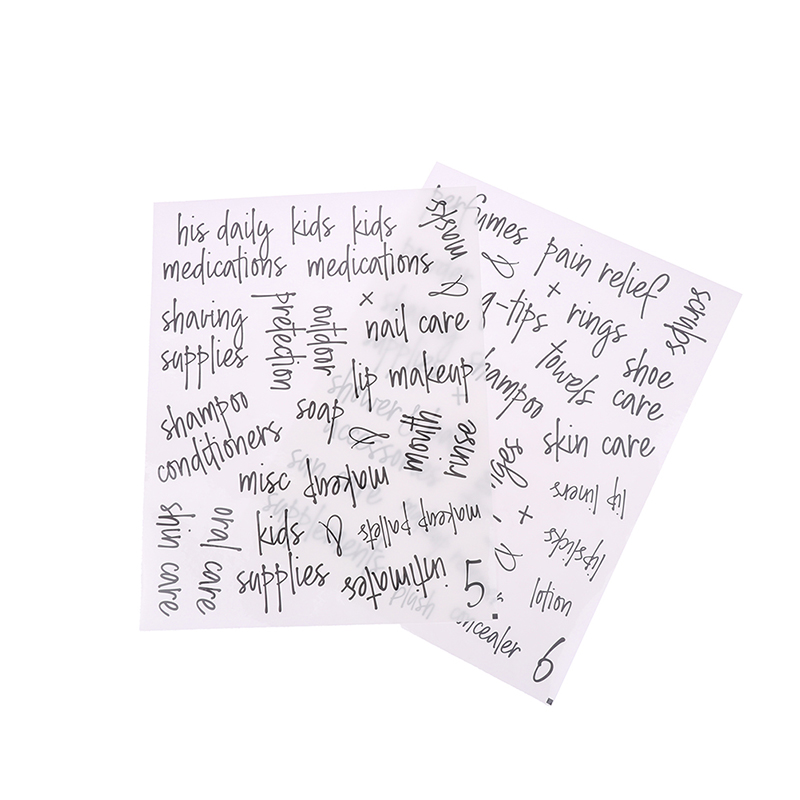 his daily kids kids
medications medications
masks
&
shaving
supplies
outdoor
pretection
×
nail care
lip makeup
shampoo
conditioners
soap &
mouth
rinse
misc makeup
skin care
oral care
kids &
supplies
makeup pallets
intimates
5.
perfumes
&
pain relief
scrubs
+
-tips
rings
shoe
care
towels
shampoo
skin care
lip liners
+
lipsticks
&
lotion
plush
concealer
6